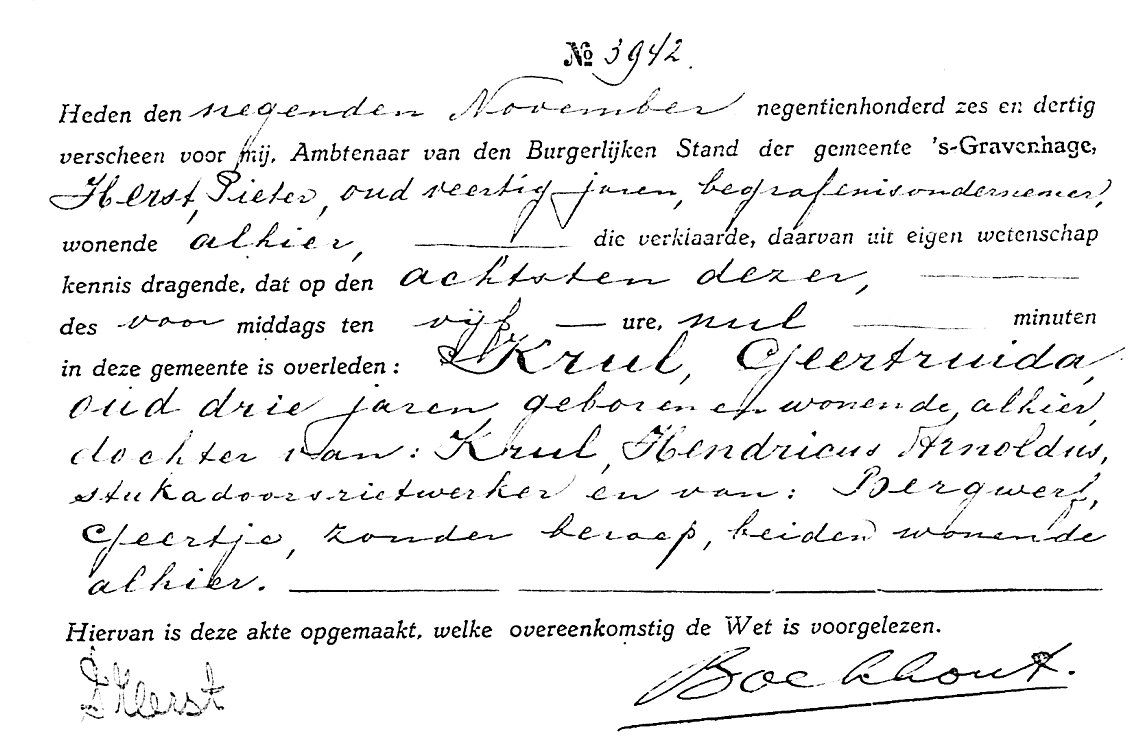 № 3942.
Heden den negenden November negentienhonderd zes en dertig
verscheen voor mij, Ambtenaar van den Burgerlijken Stand der gemeente 's-Gravenhage,
Herst, Pieter, oud veertig jaren, begrafenisondernemer,
wonende alhier, die verklaarde, daarvan uit eigen wetenschap
kennis dragende, dat op den achtsten dezer,
des voor middags ten vijf ure, nul minuten
in deze gemeente is overleden: Krul, Geertruida,
oud drie jaren, geboren en wonende alhier,
dochter van: Krul, Hendricus Arnoldus,
stukadoorsrietwerker en van: Bergwerf,
Geertje, zonder beroep, beiden wonende
alhier.
Hiervan is deze akte opgemaakt, welke overeenkomstig de Wet is voorgelezen.
P Herst Boekhout.